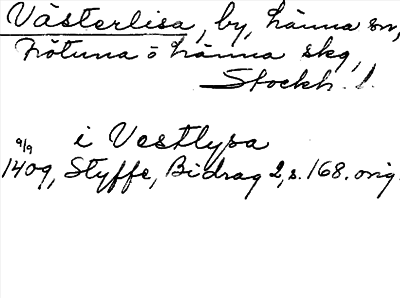 Västerlisa, by, Länna sn,
Frötuna o Länna skg,
Stockh. l.
i Vestlysa
9/9
1409, Styffe, Bidrag 2, s. 168. orig.